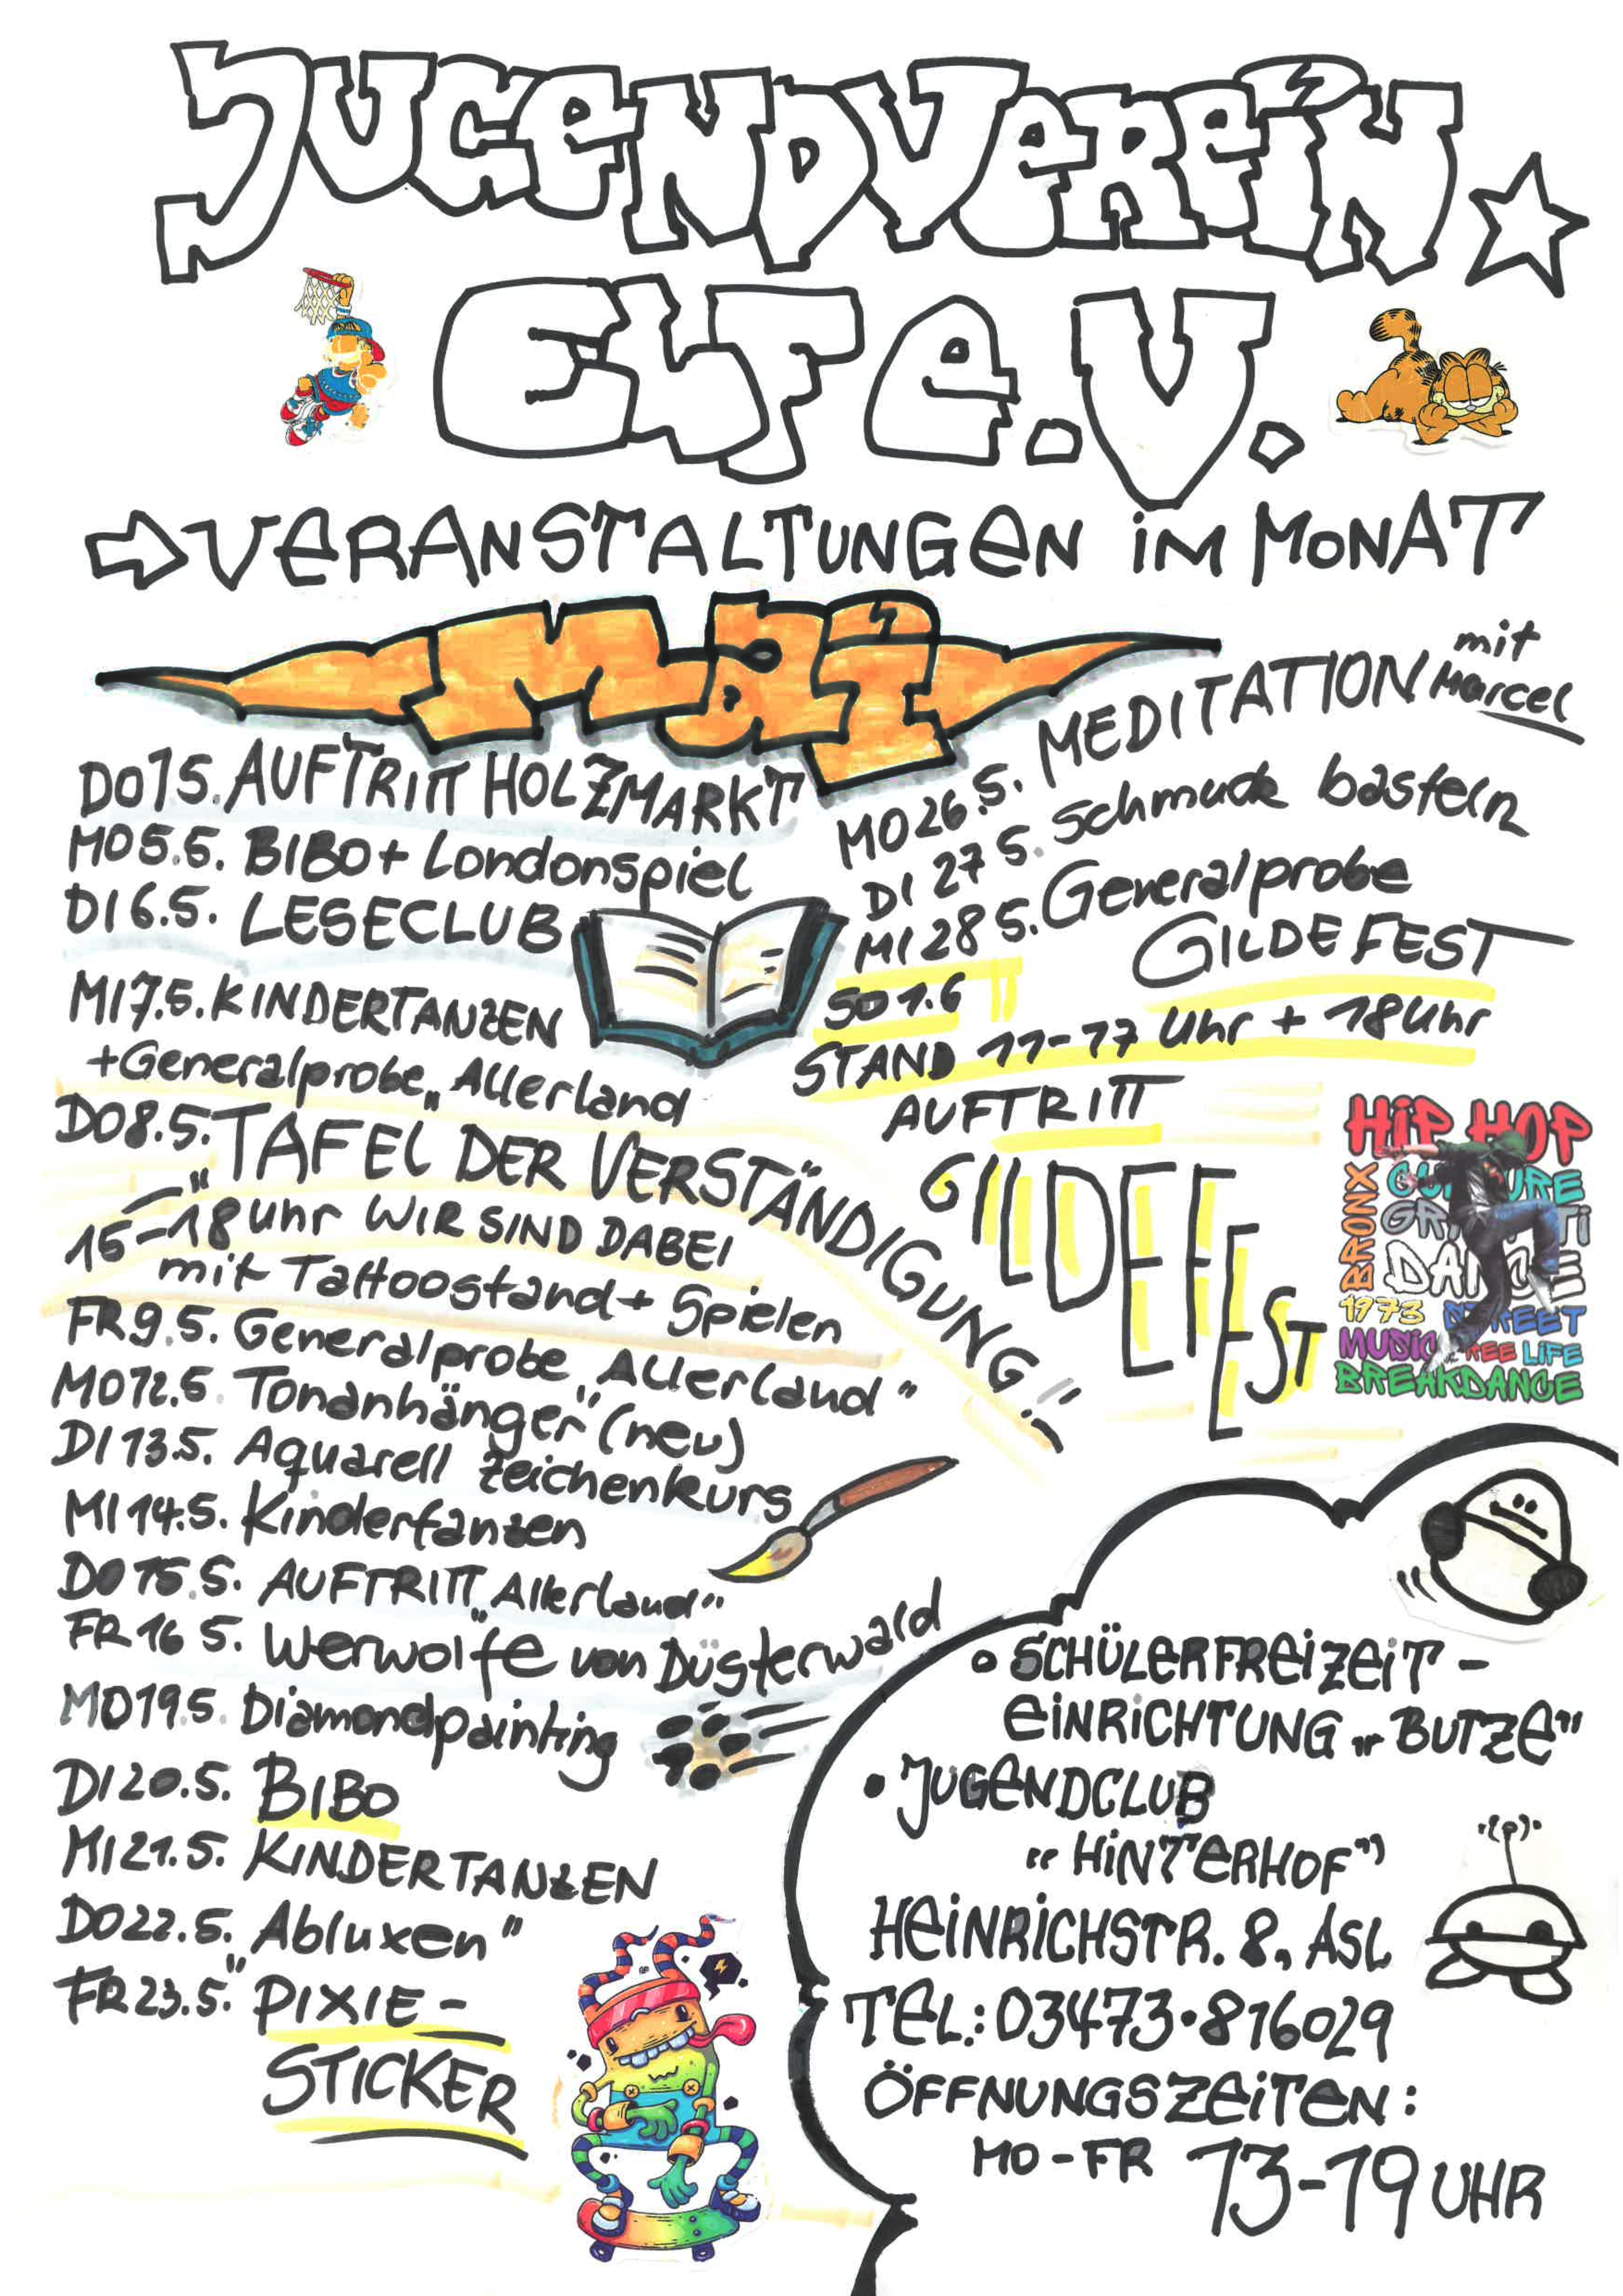 JUGENDVEREIN
ELF e.V.
VERANSTALTUNGEN IM MONAT
MAI
DO 1.5. AUFTRITT HOLZMARKT
MO 5.5. BIBO + Londonspiel
DI 6.5. LESECLUB
MI 7.5. KINDERTANZEN
+ Generalprobe „Allerland
DO 8.5. „TAFEL DER VERSTÄNDIGUNG“
15-18 Uhr WIR SIND DABEI
mit Tattoostand + Spielen
FR 9.5. Generalprobe „Allerland“
MO 12.5. Tonanhänger (neu)
DI 13.5. Aquarell Zeichenkurs
MI 14.5. Kindertanzen
DO 15.5. AUFTRITT „Allerland“
FR 16 5. Werwölfe von Düsterwald
MO 19.5. Diamondpainting
DI 20.5. BIBO
MI 21.5. KINDERTANZEN
DO 22.5. „Abluxen“
FR 23.5. PIXIE-
STICKER
MO 26.5. MEDITATION mit Marcel
DI 27 5. Schmuck basteln
MI 28 5. Generalprobe
GILDEFEST
SO 1.6
STAND 11-17 Uhr + 18 Uhr
AUFTRITT
GILDEFEST
HIP HOP
BRONX
DANCE
1973 STREET
MUSIC FREE LIFE
BREAKDANCE
• SCHÜLERFREIZEIT-
EINRICHTUNG „BUTZE“
• JUGENDCLUB
„HINTERHOF“
HEINRICHSTR. 8, ASL
TEL.: 03473·816029
ÖFFNUNGSZEITEN:
MO-FR 13-19 UHR